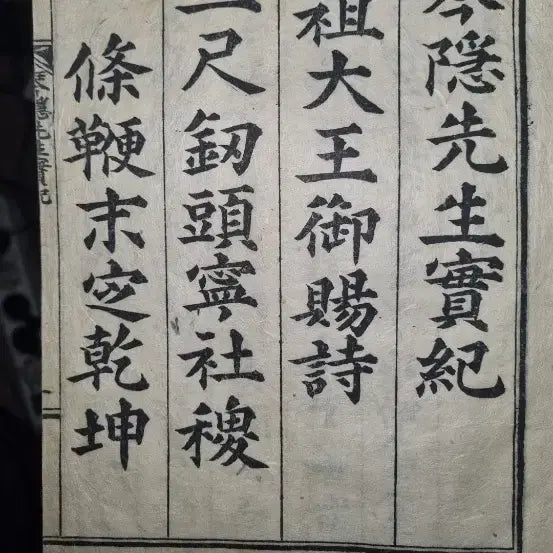 隱先生實紀
祖大王御賜詩
尺釼頭寧社稷
條鞭末㝎乾坤
隱先生實紀
一